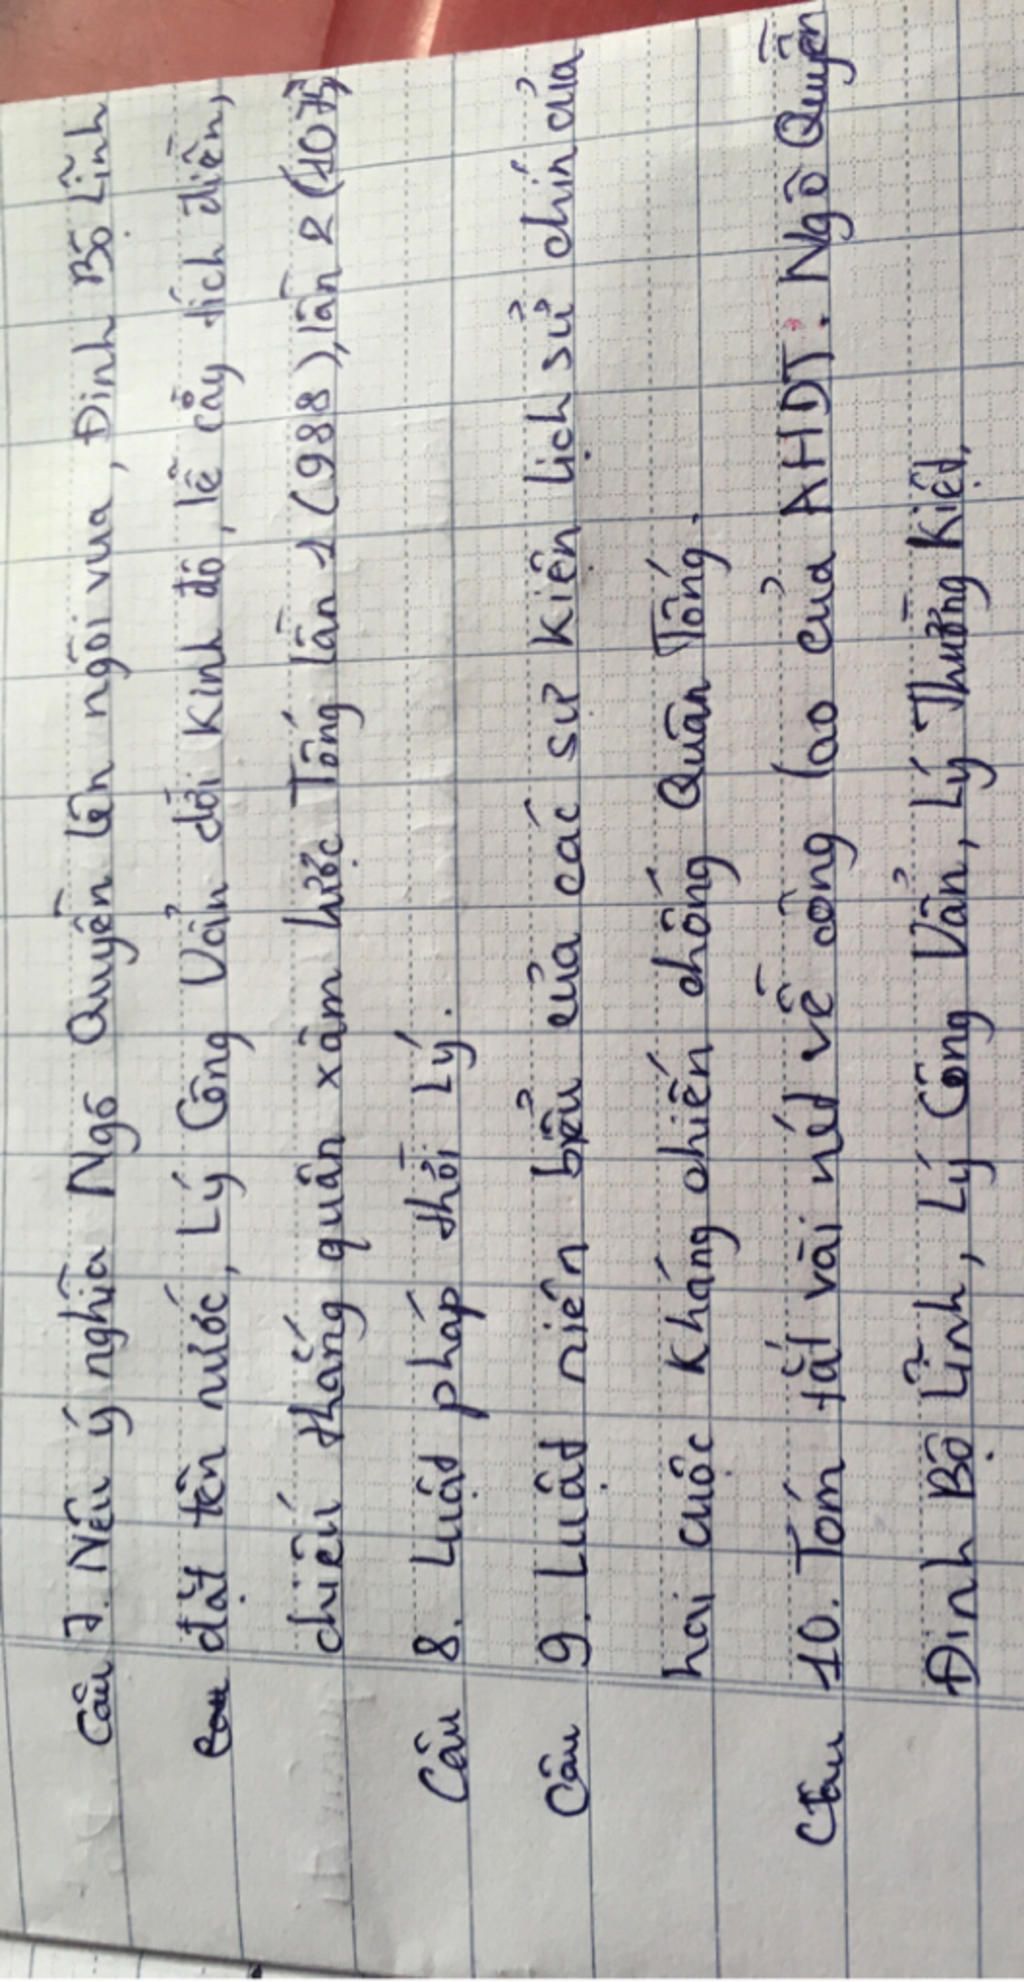 Câu 7. Nêu ý nghĩa Ngô Quyền lên ngôi vua, Đinh Bộ Lĩnh
đặt tên nước, Lý Công Uẩn dời Kinh đô, lễ cày tích điền,
chiến thắng quân xâm lược Tống lần 1 (988), lần 2 (1075)
Câu 8. Luật pháp thời Lý.
Câu 9. Luật niên biểu của các sự kiện lịch sử chín của
hai cuộc kháng chiến chống Quân Tống.
Câu 10. Tóm tắt vài nét về công lao của AHDT: Ngô Quyền
Đinh Bộ Lĩnh, Lý Công Uẩn, Lý Thường Kiệt.